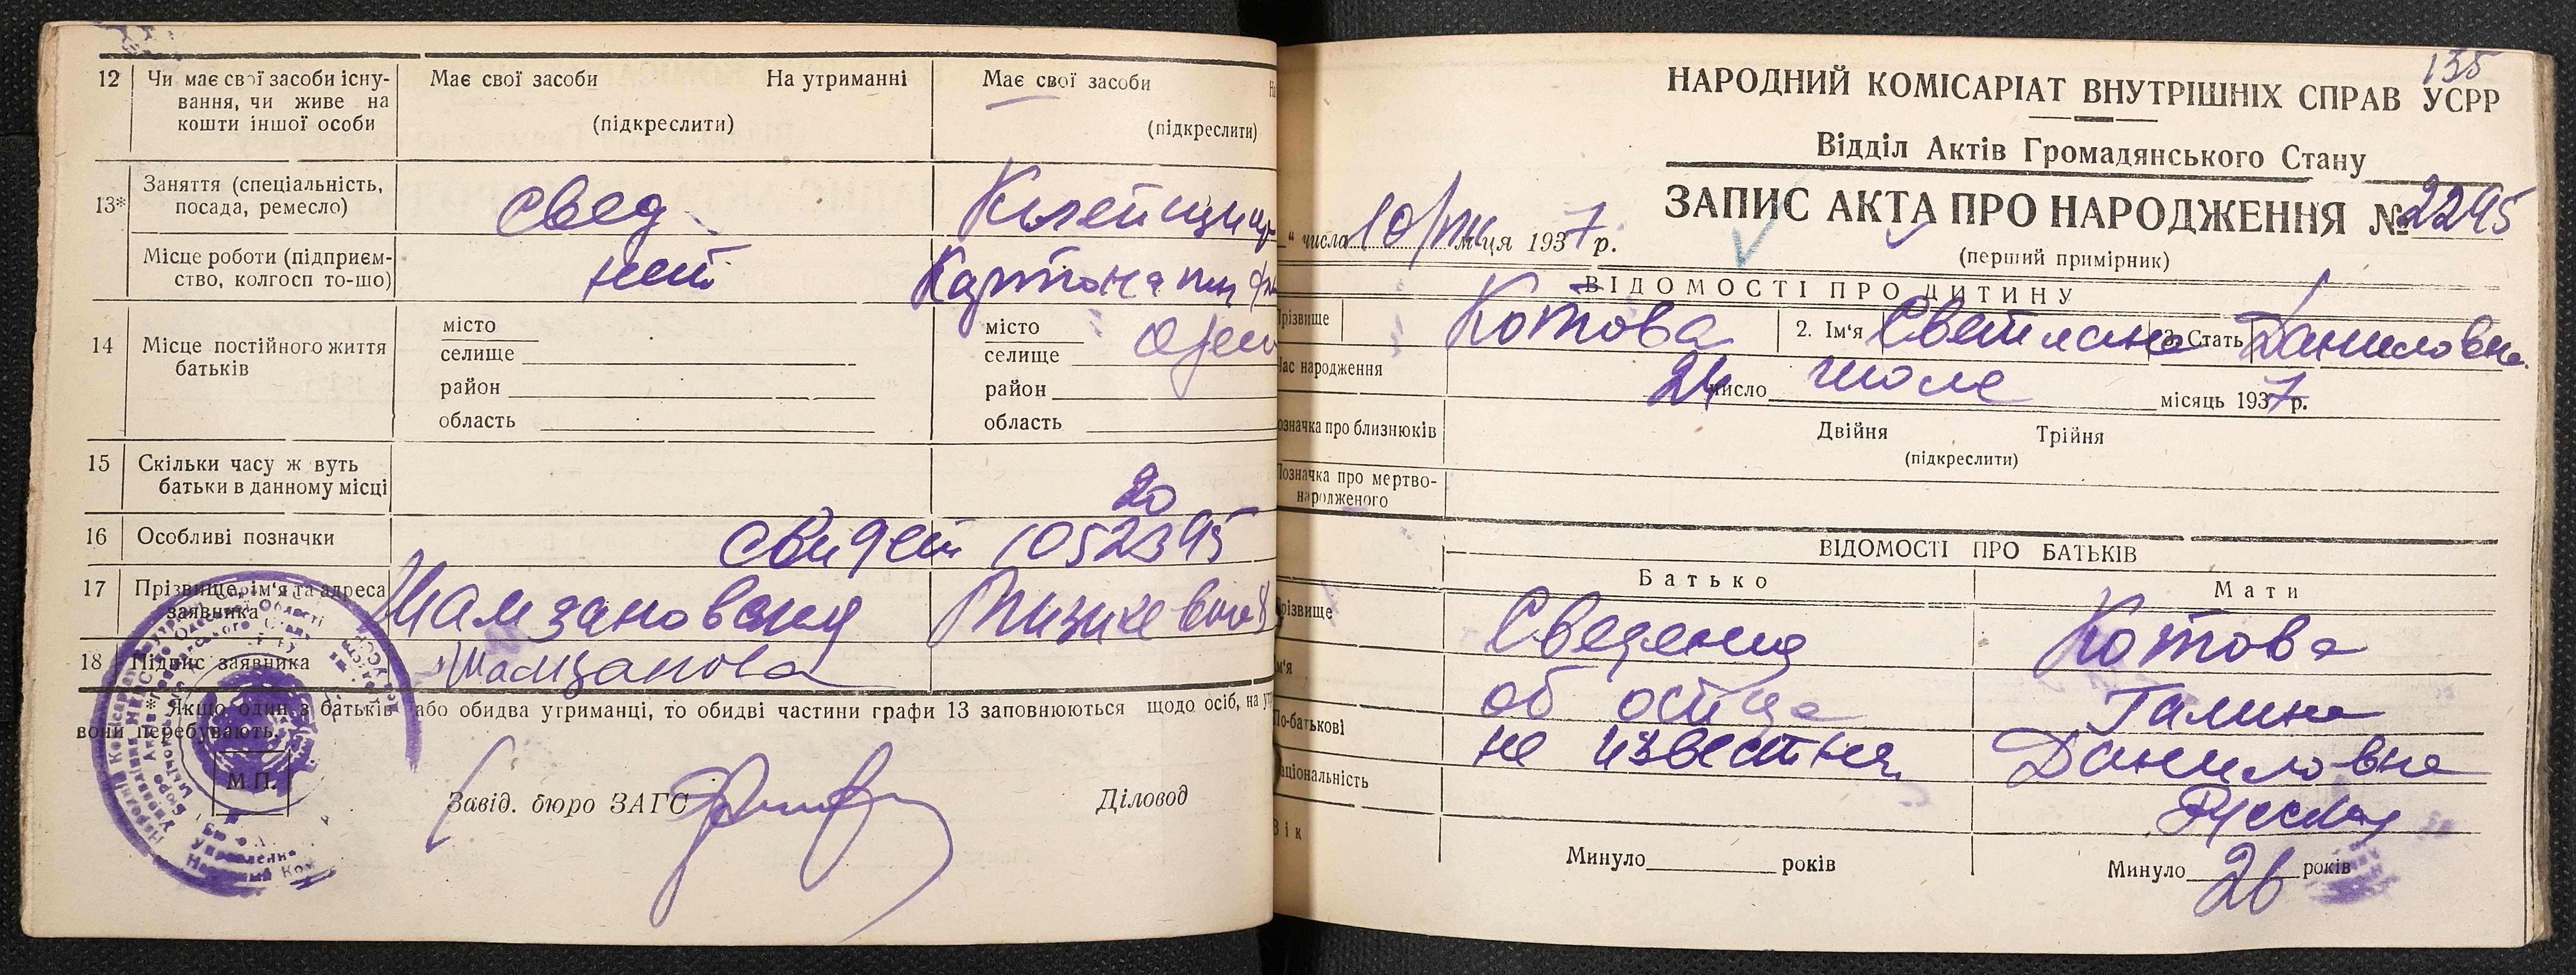 12 Чи має свої засоби існування, чи живе на кошти іншої особи
Має свої засоби На утриманні
(підкреслити)
Має свої засоби
(підкреслити)
13* Заняття (спеціальність, посада, ремесло)
свед
Клейщица
Місце роботи (підприємство, колгосп то-що)
нет
Картонаж
14 Місце постійного життя батьків
місто
селище
район
область
місто
селище
район
область
15 Скільки часу ж вуть батьки в данному місці
20
16 Особливі позначки
свидет 1052395
17 Прізвище, ім'я та адреса заявника
18 Підпис заявника
*Якщо один з батьків або обидва утриманці, то обидві частини графи 13 заповнюються щодо осіб, на
вони перебувають.
М.П.
Завід. бюро ЗАГС
Діловод
135
НАРОДНИЙ КОМІСАРІАТ ВНУТРІШНІХ СПРАВ УСРР
Відділ Актів Громадянського Стану
ЗАПИС АКТА ПРО НАРОДЖЕННЯ № 2295
" числа 10/ м-ця 1937 р.
(перший примірник)
ВІДОМОСТІ ПРО ДИТИНУ
Прізвище Котова 2. Ім'я Светлана 3. Стать Даниловна
Час народження 24 число июле місяць 1937 р.
Позначка про близнюків Двійня Трійня
(підкреслити)
Позначка про мертвонародженого
ВІДОМОСТІ ПРО БАТЬКІВ
Батько Мати
Прізвище Сведения Котова
Ім'я об отце Галина
По-батькові не известная Даниловна
Національність Русская
Вік Минуло років Минуло 26 років